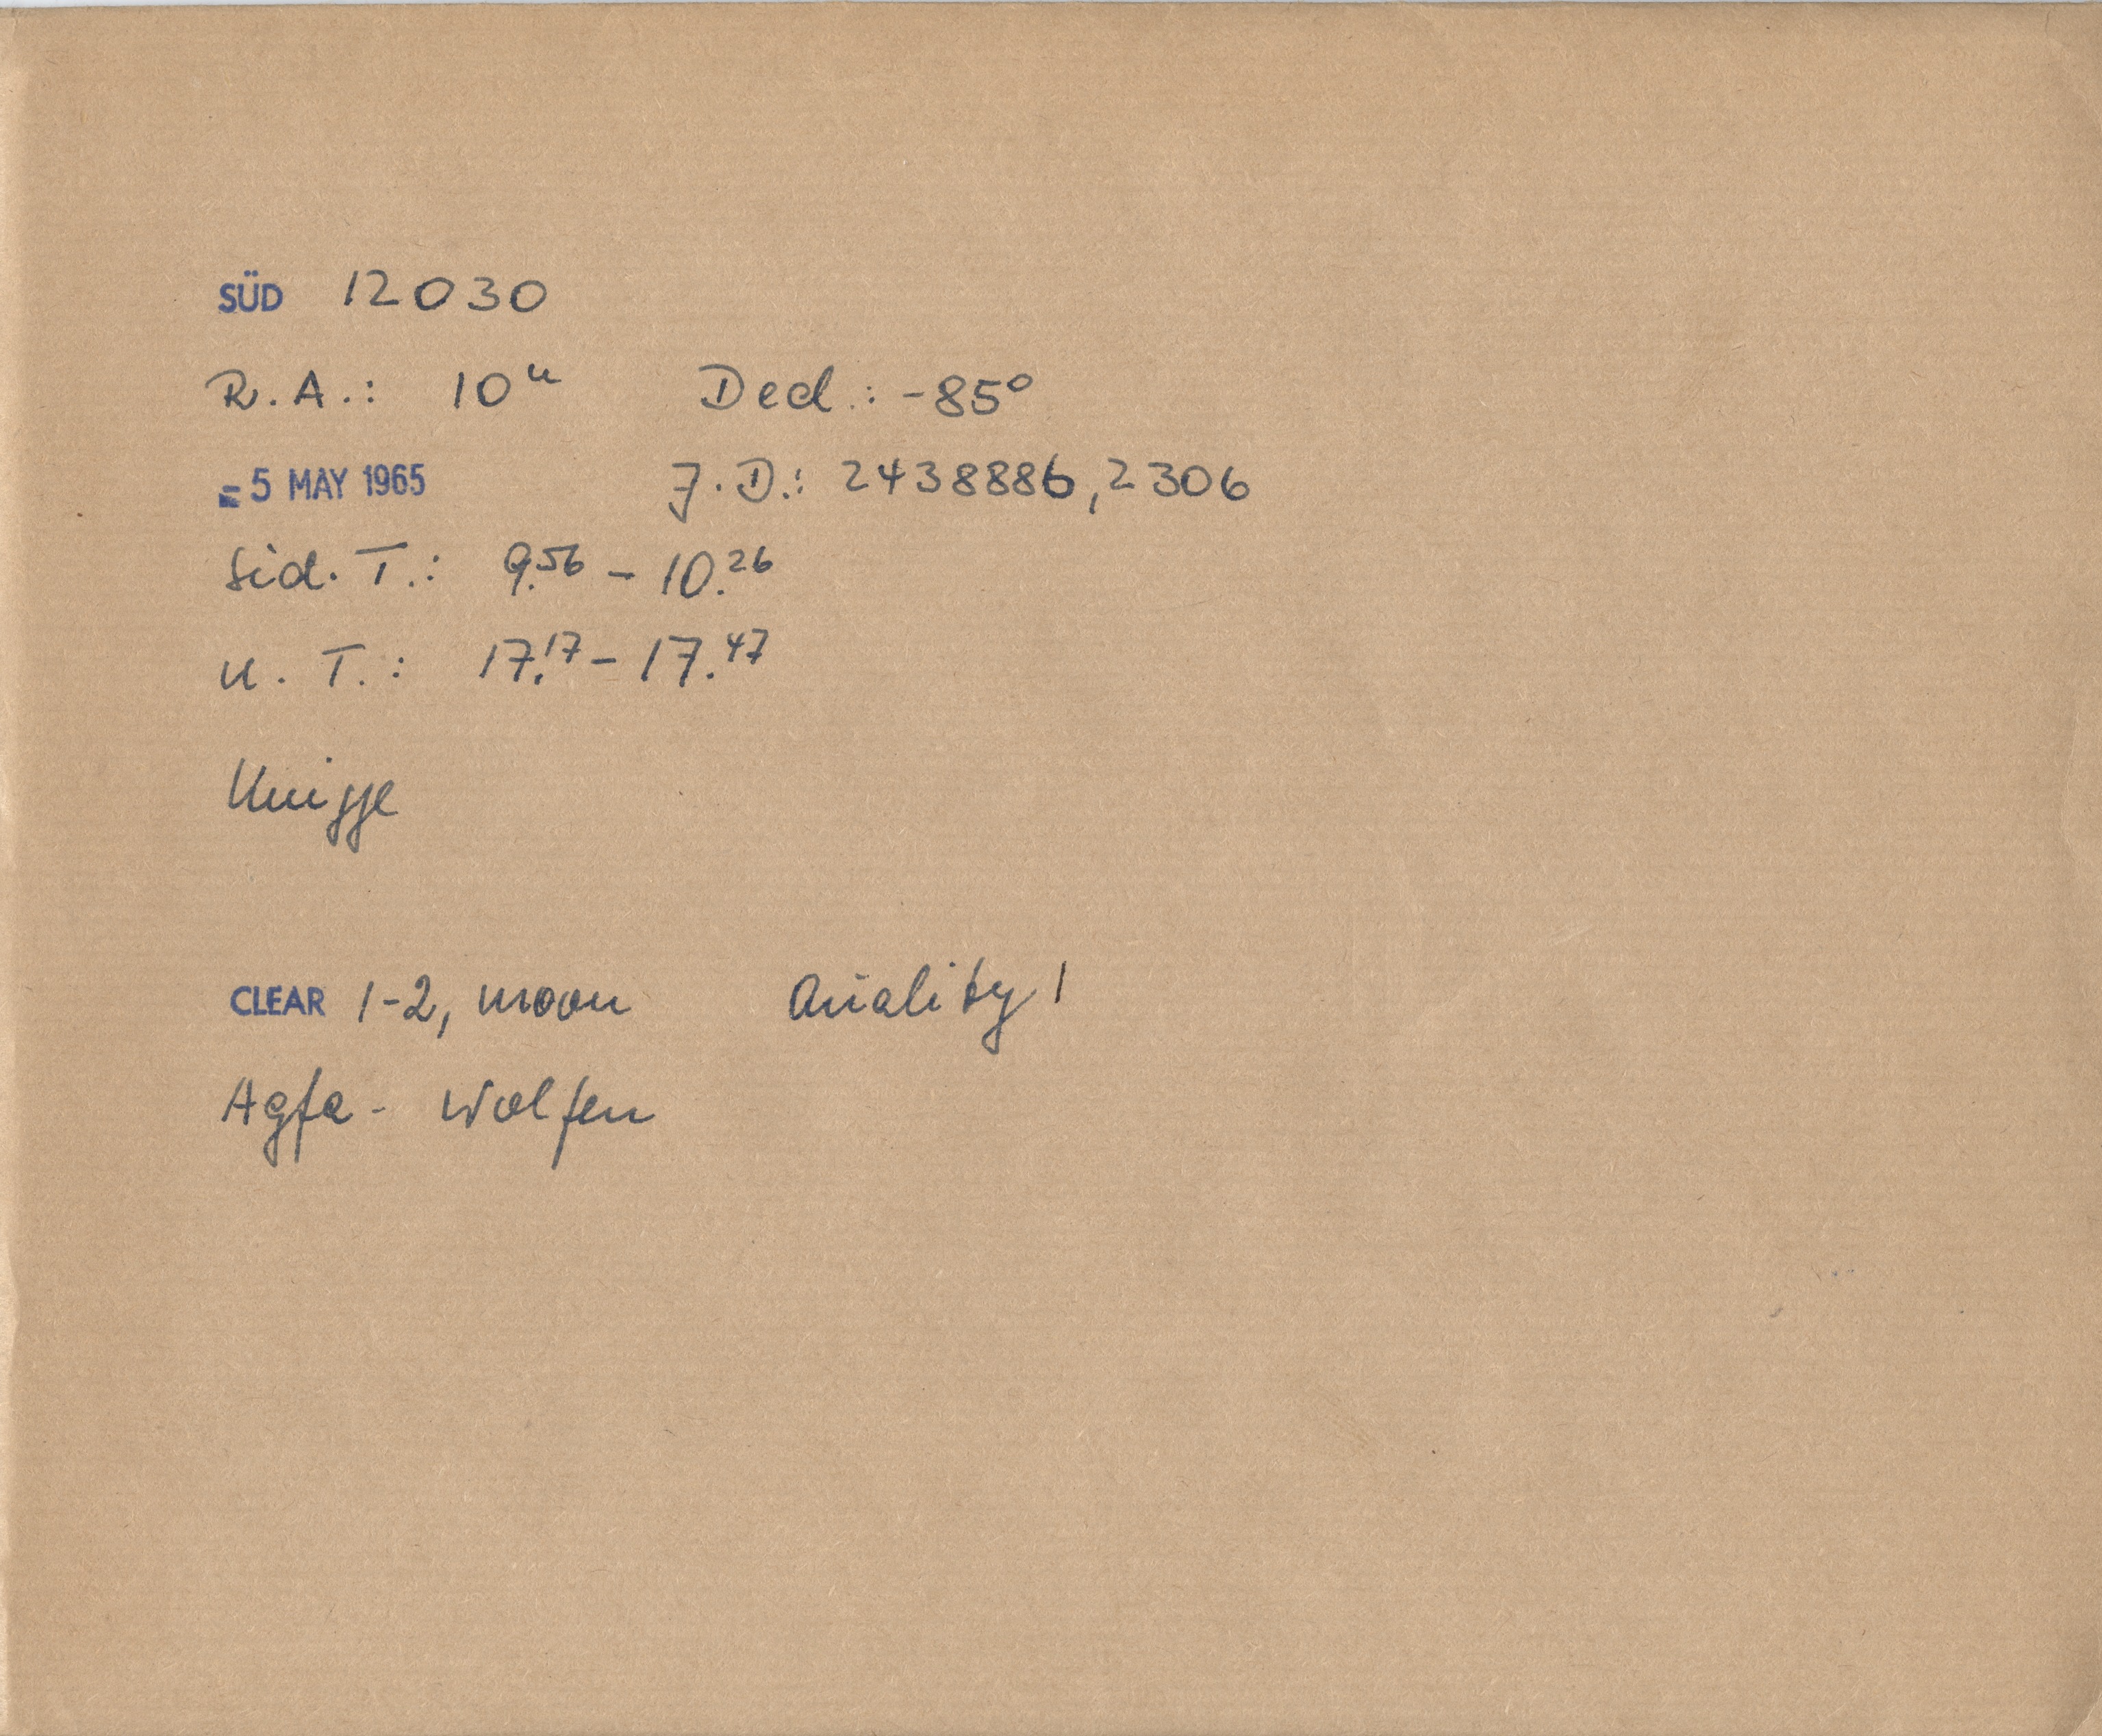 SÜD 12030
R.A.: 10ʰ Decl.: -85°
- 5 MAY 1965 J.D.: 2438886,2306
Sid. T.: 9.56 - 10.26
U. T.: 17.17 - 17.47
Knigge
CLEAR 1-2, moon Quality 1
Agfa - Wolfen